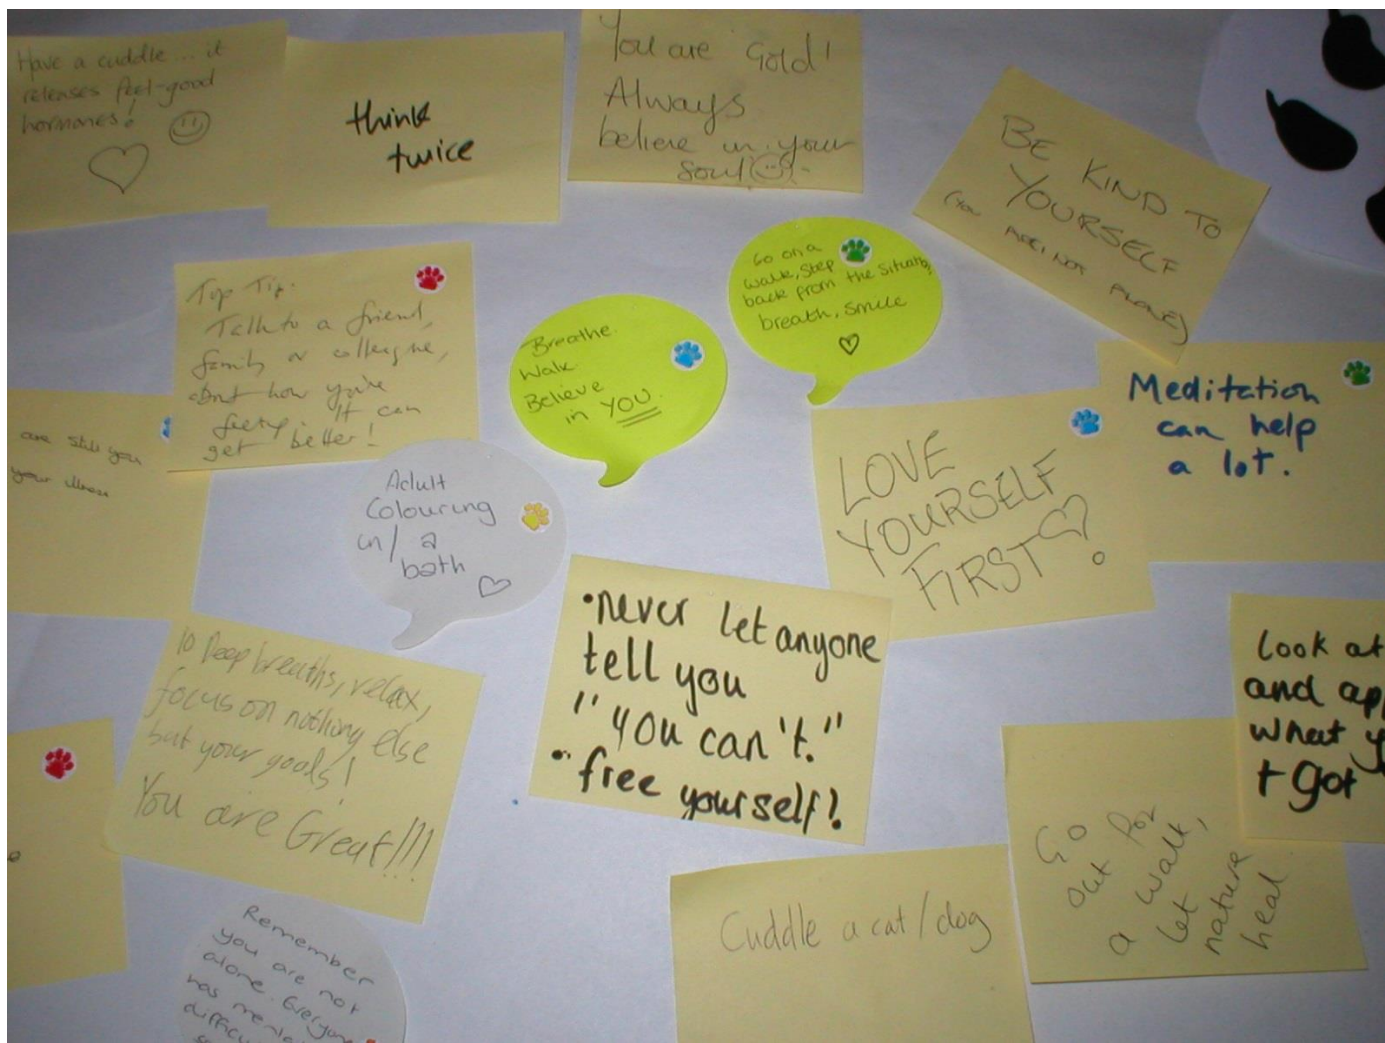 Have a cuddle... it
releases feel-good
hormones!
think
twice
You are Gold!
Always
believe in your
soul
BE KIND TO
YOURSELF
(YOU ARE NOT ALONE)
Top Tip.
Talk to a friend,
family or colleague,
about how you're
feeling. It can
get better!
Breathe.
Walk
Believe
in YOU.
Go on a
walk, step
back from the situation,
breath, smile
Meditation
can help
a lot.
are still you
your illness
Adult
Colouring
in/ a
bath
LOVE
YOURSELF
FIRST!
•never let anyone
tell you
"you can't."
•free yourself!
10 Deep breaths, relax,
focus on nothing else
but your goals!
You are Great!!!
Look at
and app
what y
+ got
Go
out for
a walk,
let
nature
heal
Cuddle a cat/dog
Remember
you are not
alone. Everyone
has menta
difficu